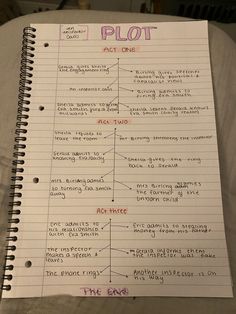 An inspector calls
PLOT
ACT ONE
Gerald gives Sheila the engagement ring
Birling gives speeches about his political & capitalist views
An inspector calls
Birling admits to firing Eva Smith
Sheila admits to getting Eva Smith fired from Milwards
Sheila senses Gerald knows Eva Smith (Daisy Renton)
ACT TWO
Sheila refuses to leave the room
Mr Birling threatens the inspector
Gerald admits to knowing Eva/Daisy
Sheila gives the ring back to Gerald
Mrs Birling admits to turning Eva Smith away
Mrs Birling blames the father of the unborn child
ACT three
Eric admits to his relationship with Eva Smith
Eric admits to stealing money from his father
The inspector makes a speech & leaves
Gerald informs them the inspector was fake
The phone rings
Another inspector is on his way
THE END